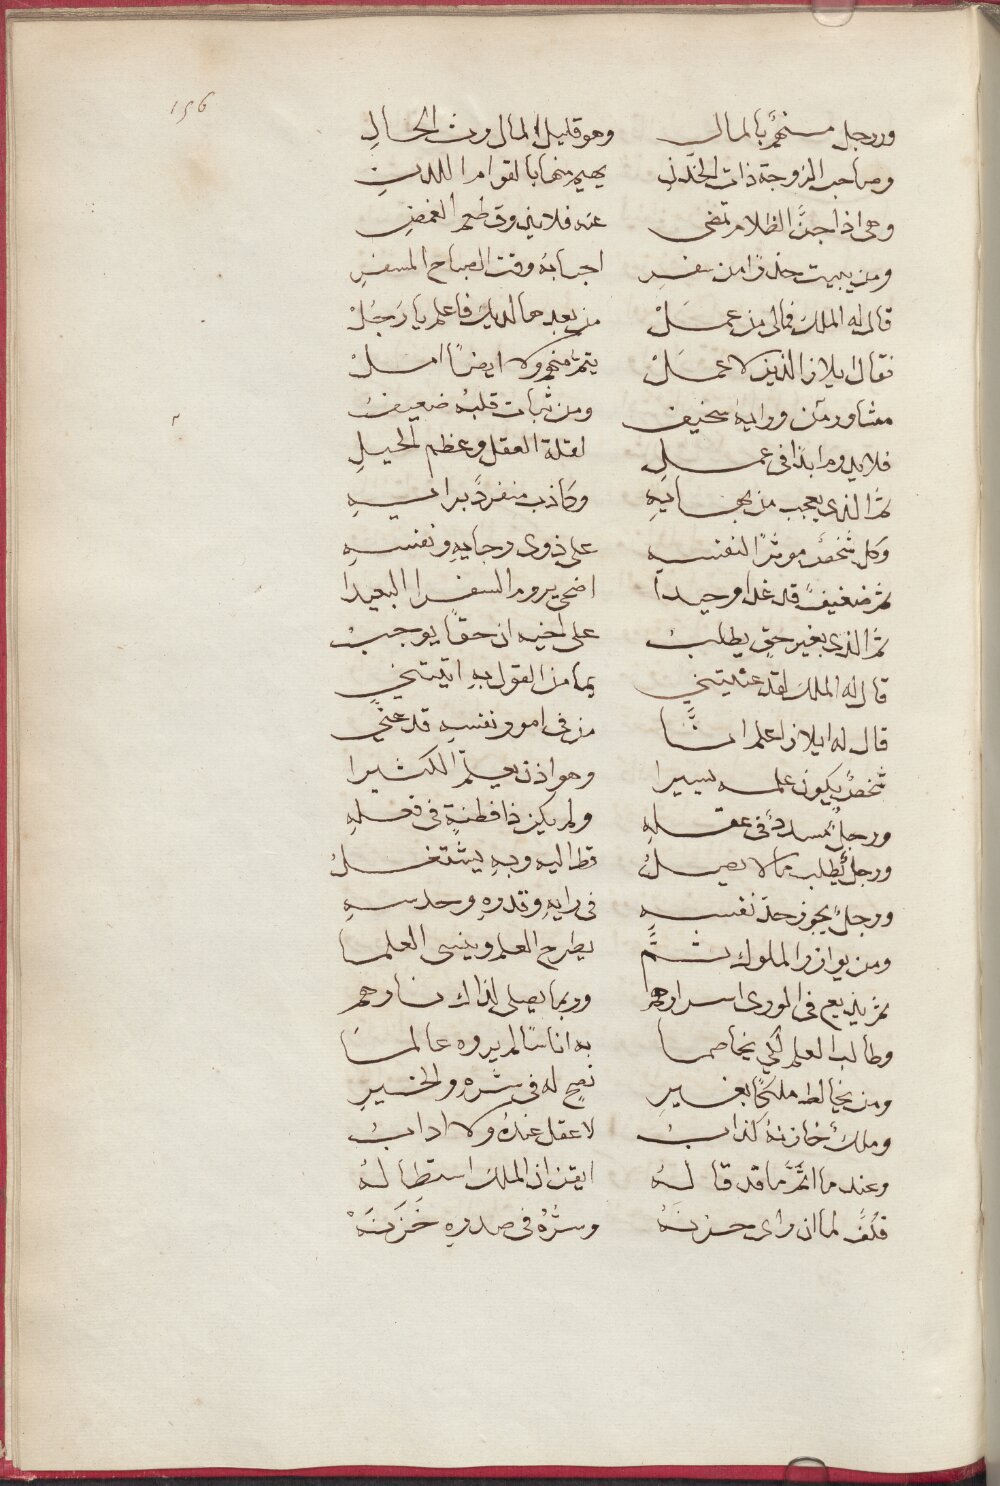 156
ورجل متهم بالمالِ وهو قليل المال رث الحالِ
وصاحب الزوجة ذات الخدنِ يهيم منها بالقوام اللدنِ
وهى اذا جنَّ الظلام تمضى عنه فلا يذوق طعم الغمضِ
ومن يبيت حذرًا من سفرِ احبابه وقت الصباح المسفرِ
قال له الملك فمالى من عملْ من بعدها لديك فاعلم يا رجُلْ
فقال ايلاذ الذين لا عملْ يتم منهم ولا ايضًا املْ
مشاور من ورايه سخيف ومن ثبات قلبه ضعيفُ
فلا يدوم ابدًا فى عملِ لقلة العقل وعظم الحيلِ
ثم الذى يعجب من بجانبهِ وكاذب منفردً برايهِ
وكل شخصٍ موثرًا لنفسهِ على ذوى رجايهِ ونفسهِ
ثم ضعيفً قد غدا وحيدا اضحى يروم السفر البعيدا
ثمَّ الذى بغير حقٍ يطلبُ على اخيه ان حقًا يوجبُ
قال له الملك لقد عنيتنى بما من القول به اتيتنى
قال له ايلاذ اعلم انَّنا من فى امور نفسهِ قد عنى
شخصٌ يكون علمه يسيرا وهو اذن يعلّم الكثيرا
ورجلٌ مسددٌ فى عقلهِ ولم يكن ذا فطنةٍ فى فعلهِ
ورجلٌ يطلب ما لا يصلُ قط اليه وبهِ يشتغلُ
ورجلٌ يجوز حدَّ نفسهِ فى رايهِ وقدرهِ وحدسهِ
ومن يوازر الملوك ثمَّ يطرح العلم وينسى العلما
ثم يذيع فى الورى اسرارهم وربما يصلى لذاك نارهم
وطالب العلم لكى يخاصما به اناسًا لم يروه عالمًا
ومن يخالط ملكًا بغيرِ نصحٍ له فى شرهِ والخيرِ
وملكٌ خازنهُ كذابُ لا عقل عندهُ ولا ادابُ
وعند ما اتمَّ ما قد قالهُ ايقن ان الملك استطالهُ
فكفَّ لما ان راى حزنهُ وسرُّهُ فى صدرهِ خَزَنَهْ